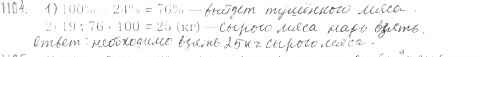 1104. 1) 100% - 24% = 76% - выйдет тушёного мяса.
2) 19 : 76 · 100 = 25 (кг) - сырого мяса надо взять.
Ответ: необходимо взять 25 кг сырого мяса.